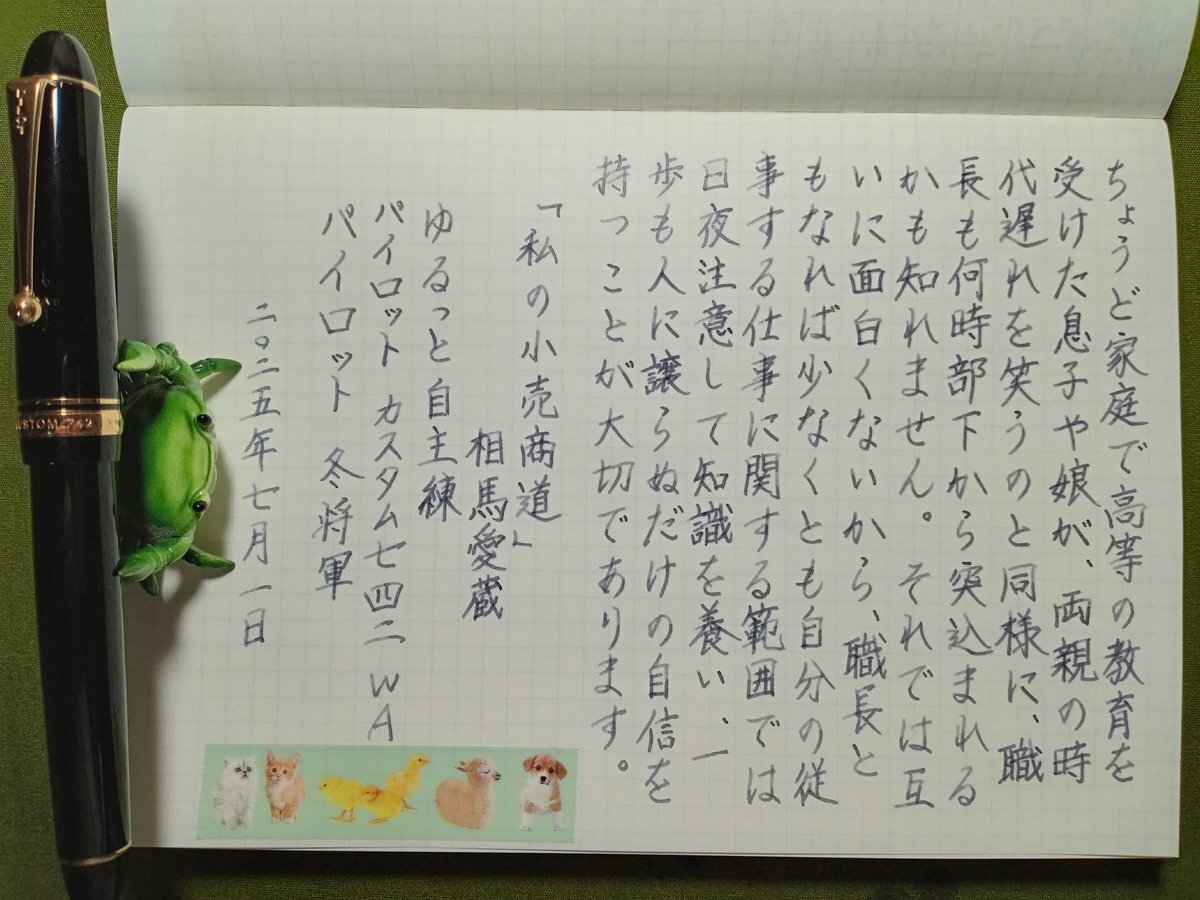 ちょうど家庭で高等の教育を
受けた息子や娘が、両親の時
代遅れを笑うのと同様に、職
長も何時部下から突込まれる
かも知れません。それでは互
いに面白くないから、職長と
もなれば少なくとも自分の従
事する仕事に関する範囲では
日夜注意して知識を養い、一
歩も人に譲らぬだけの自信を
持つことが大切であります。
「私の小売商道」
相馬愛蔵
ゆるっと自主練
パイロット カスタム七四二 WA
パイロット 冬将軍
二〇二五年七月一日
CUSTOM 742